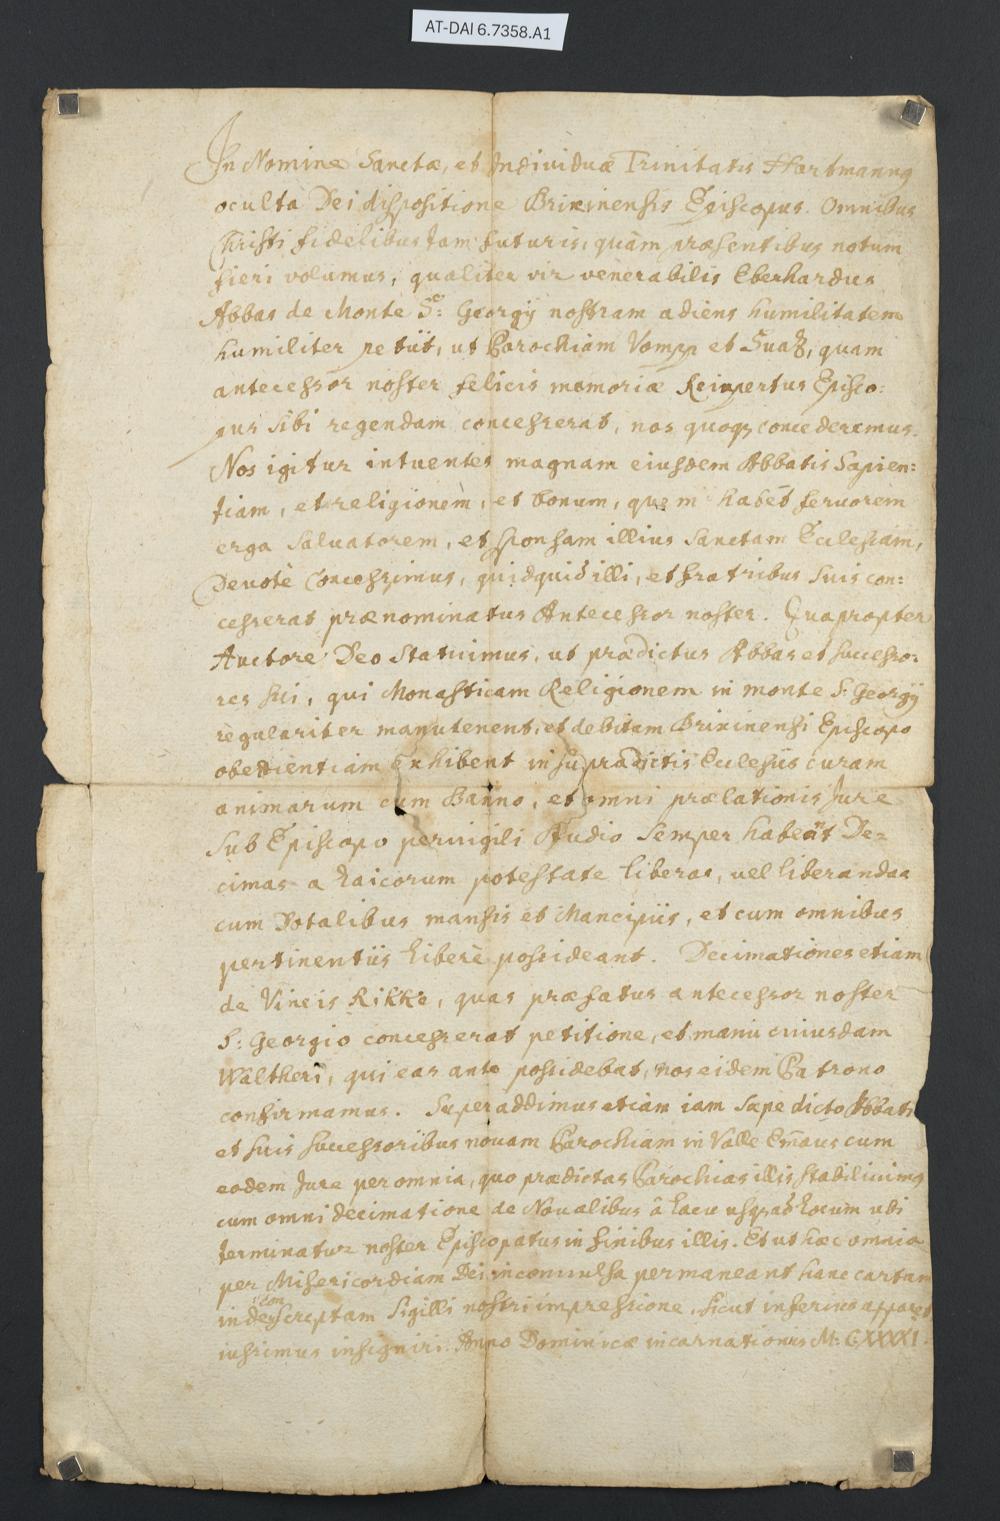 AT-DAI 6.7358.A1
In Nomine Sanctæ, et Individuæ Trinitatis Hartmannus
oculta Dei dispositione Brixinensis Episcopus. Omnibus
Christi fidelibus tam futuris, quàm præsentibus notum
fieri volumus, qualiter vir venerabilis Eberhardus
Abbas de Monte S.ᶜ: Georgÿ nostram adiens humilitatem
humiliter petÿt, ut Parochiam Vompp et Suaz, quam
antecessor noster felicis memoriæ Reinpertus Episco:
pus sibi regendam concesserat, nos quoqꝫ concederemus.
Nos igitur intuentes magnam eiusdem Abbatis Sapien:
tiam, et religionem, et bonum, quem habet feruorem
erga Saluatorem, et sponsam illius Sanctam Ecclesiam,
Deuotè Concessimus, quidquid illi, et fratribus suis con:
cesserat prænominatus Antecessor noster. Quapropter
Auctore Deo Statuimus, ut prædictus Abbas et successo:
res sui, qui Monasticam Religionem in monte S: Georgÿ
regulariter manutenent, et debitam Brixinensi Episcopo
obedientiam exhibent in supradictis Ecclesÿs curam
animarum cum Banno, et omni prælationis Jure
Sub Episcopo peruigili Studio Semper habeant De=
cimas a Laicorum potestate liberas, uel liberandas
cum Dotalibus mansis et Mancipÿs, et cum omnibus
pertinentÿs Liberè possideant. Decimationes etiam
de Vineis Rikke, quas præfatus antecessor noster
S: Georgio concesserat petitione, et manu cuiusdam
Waltheri, qui eas ante possidebat, nos eidem Patrono
confirmamus. Superaddimus etiam iam sæpe dicto Abbati
et suis successoribus nouam Parochiam in Valle Emaus cum
eodem Jure per omnia, quo prædictas Parochias illis stabiliuimus
cum omni decimatione de Noualibus â Lacu usqꝫ ad Locum ubi
terminatur noster Episcopatus in finibus illis. Et ut hæc omnia
per Misericordiam Dei inconuulsa permaneant hanc cartam
scriptam Sigilli nostri impressione, sicut inferius apparet
iussimus insigniri. Anno Dominicæ incarnationis M: CXXXXI.